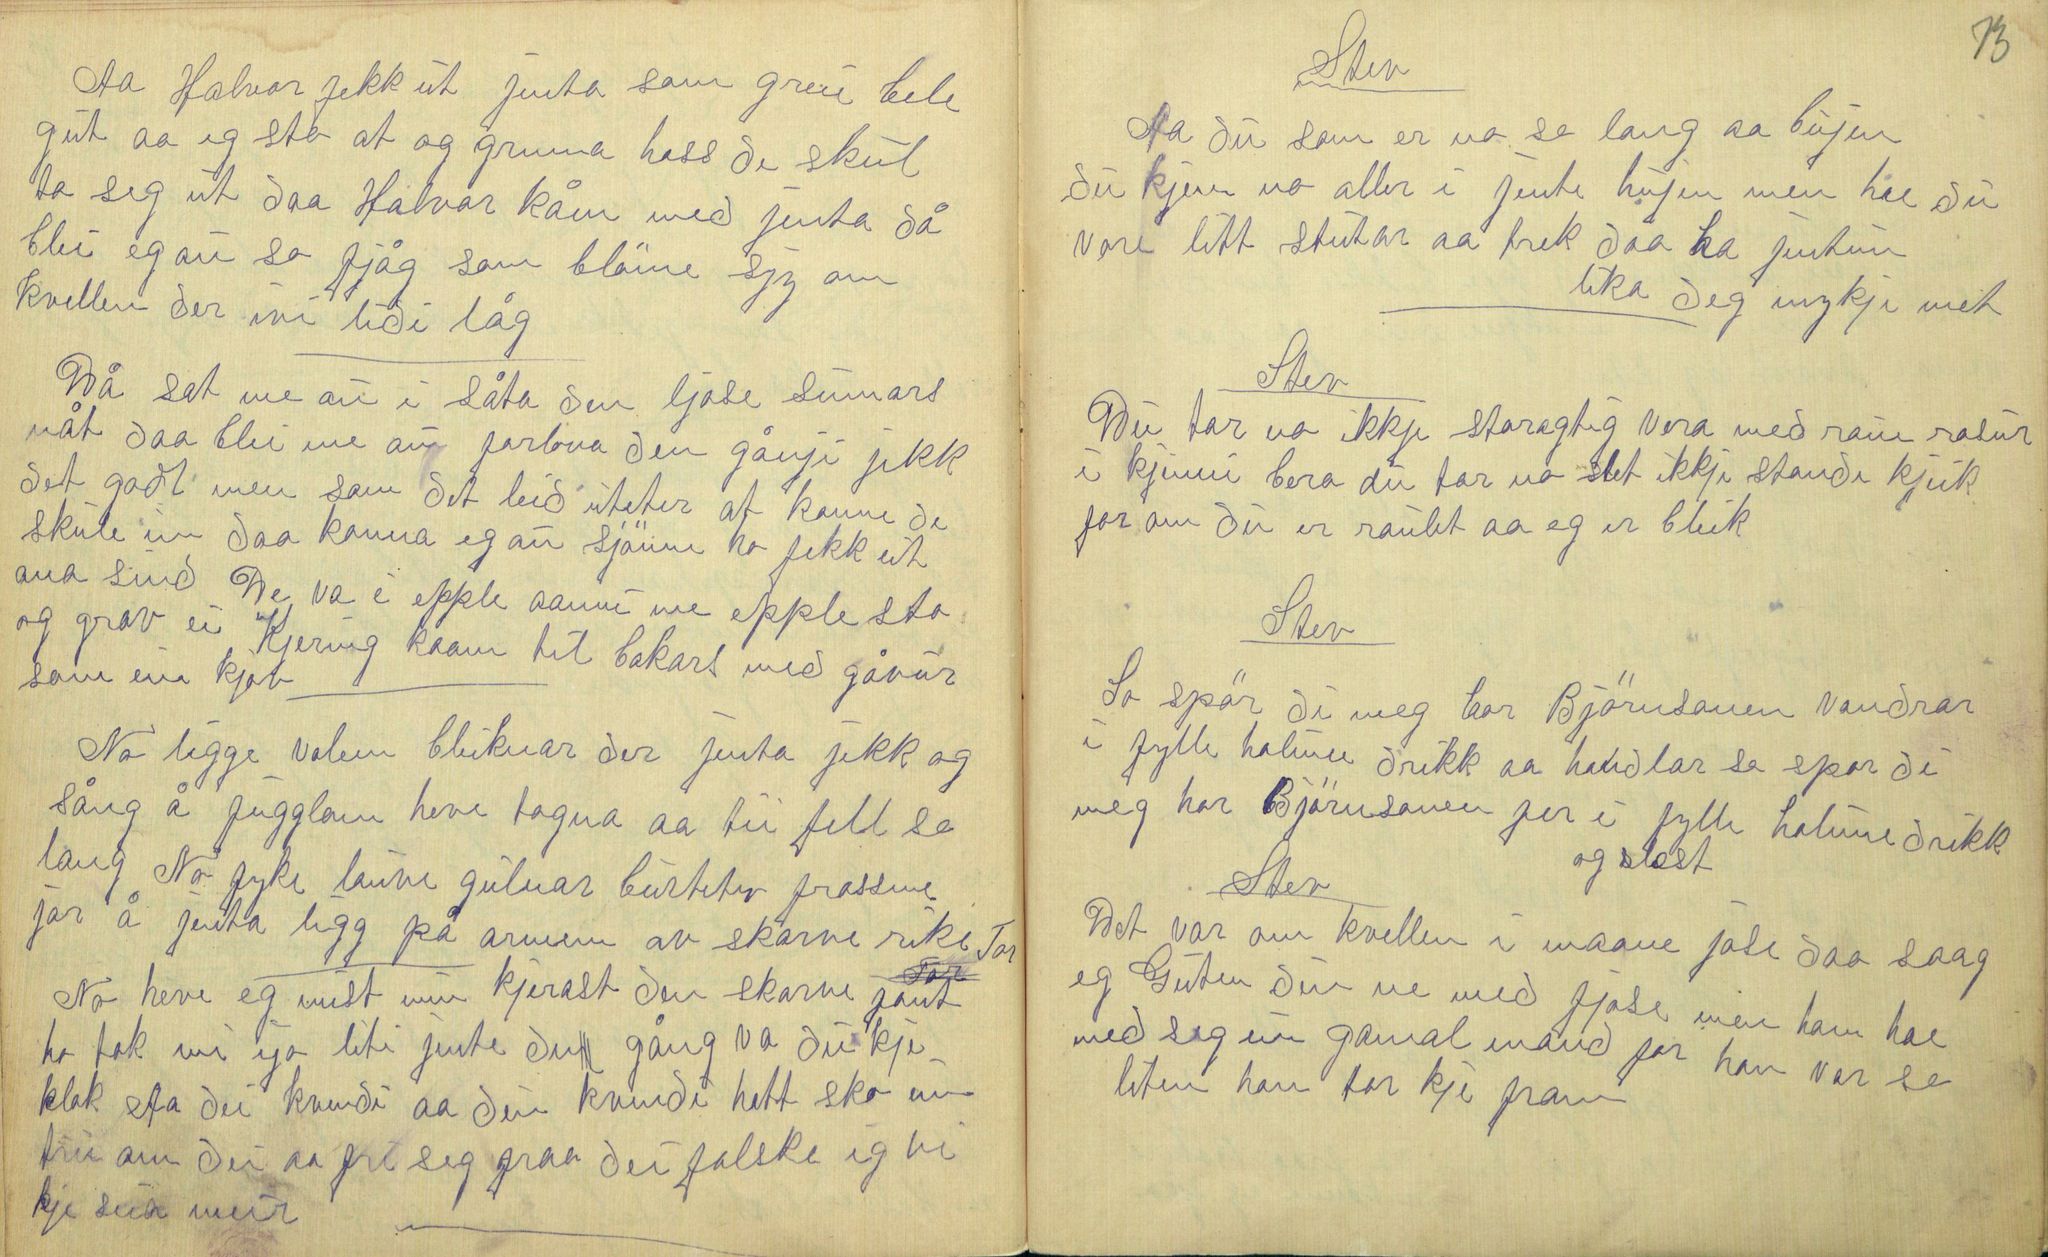 Aa Halvor jekk ut jenta som greie bele
gut aa eg sto at og gruna hoss de skul
ta seg ut daa Halvor kåm med jenta då
blei eg au so fjåg som blöme sjy om
kvellen der ivi lidi låg
Då sat me au i såta den ljose sumars
nåt daa blei me au forlova den gånji jekk
det godt men som det leid uteter at konne de
skule in daa konna eg au sjönne ho fekk eit
ana sind De va i epple aanni me epple sto
og grov ei Kjering kaam til bakars med gåvur
som ein kjov
No ligge volen bleiknar der jenta jekk og
sång å fugglam heve tagna aa tii fell so
lang No fyke lauve gulnar burteter frossne
jor å jenta ligg på armem av skarve rike Tor
No heve eg mist min kjerast den skarve fant
ho tok mi ijo liti jente den gång va du kje
klok Aa dei kvendi aa dei kvendi hett sko ein
tru om dei aa fri seg fraa dei falske ig vi
kje sua meir
73
Stev
Aa du som er no so lang aa bujen
du kjem no aller i jente hujen men hae du
vore litt stutar aa trek daa ha jentun
lika deg mykji met
Stev
Du tar no ikkje storagtig vera med raue rosur
i kjinni bera du tar no slet ikkji standi kjeik
for om du er raulet aa eg er bleik
Stev
So spör di meg hor Björnsonen vandrar
i fylle holune drikk aa handlar so spor di
meg hor Björnsonen fer i fylle holune drikk
og slost
Stev
Det var om kvellen i maane jose daa saag
eg Guten din ne med fjose men ham hae
med seg ein gamal mand for han var so
liten han tor kje fram